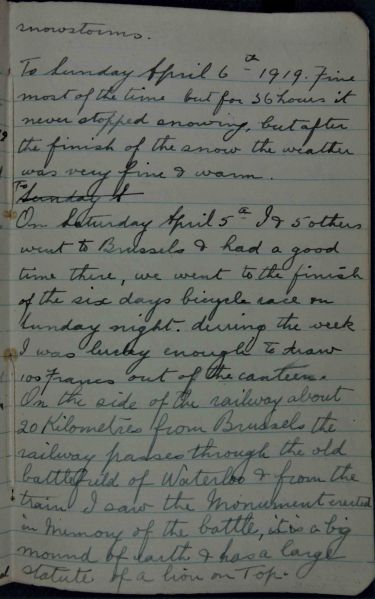 snowstorms.
To Sunday April 6th 1919. Fine
most of the time but for 36 hours it
never stopped snowing, but after
the finish of the snow the weather
was very fine & warm.
To
Sunday
On Saturday April 5th I & 5 others
went to Brussels & had a good
time there, we went to the finish
of the six days bicycle race on
Sunday night. during the week
I was lucky enough to draw
100 Francs out of the canteen.
On the side of the railway about
20 Kilometres from Brussels the
railway passes through the old
battlefield of Waterloo & from the
train I saw the Monument erected
in Memory of the battle, it is a big
mound of earth & has a large
statute of a lion on Top.